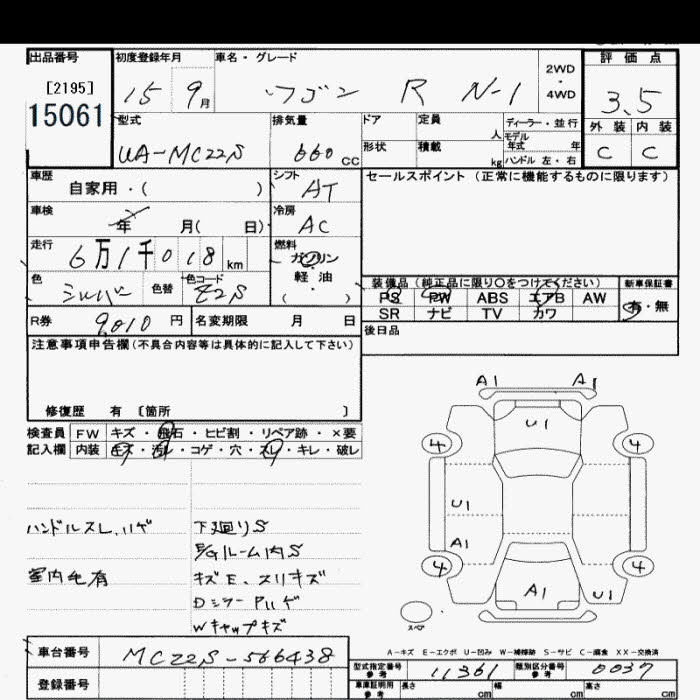 出品番号 初度登録年月 車名・グレード 2WD・4WD 評価点
[2195]
15061 15 9月 ワゴン R N-1 3.5
型式 排気量 ドア 定員 人 ディーラー・並行 外装 内装
モデル年式 年
UA-MC22S 660CC 形状 積載 kg ハンドル 左・右 C C
車歴 シフト セールスポイント (正常に機能するものに限ります)
自家用・( ) AT
車検 年 月( 日) 冷房 AC
走行 6万1千018km 燃料 ガソリン
軽・油
( )
色 シルバー 色替 色コード Z2S 装備品 (純正品に限り〇をつけてください) 新車保証書
PS PW ABS エアB AW 有・無
SR ナビ TV カワ
R券 9010円 名変期限 月 日 後日品
注意事項申告欄(不具合内容等は具体的に記入して下さい)
修復歴 有 [箇所 ]
検査員 FW キズ・飛石・ヒビ割・リペア跡・×要
記入欄 内装 キズ・汚れ・コゲ・穴・スレ・キレ・破レ
ハンドルスレ、ハゲ 下廻りS
E/Gルーム内S
室内毛有 キズE、スリキズ
Dミラー Pハゲ
Wキャップキズ
A1 A1
U1
4 4
U1
A1
4 4
A1 U1
スペア
A-キズ E-エクボ U-凹み W-補修跡 S-サビ C-腐食 XX-交換済
車台番号 MC22S-566438
登録番号
型式指定番号 参考 11361 類別区分番号 参考 0037
車庫証明用 参考 長さ cm 幅 cm 高さ cm